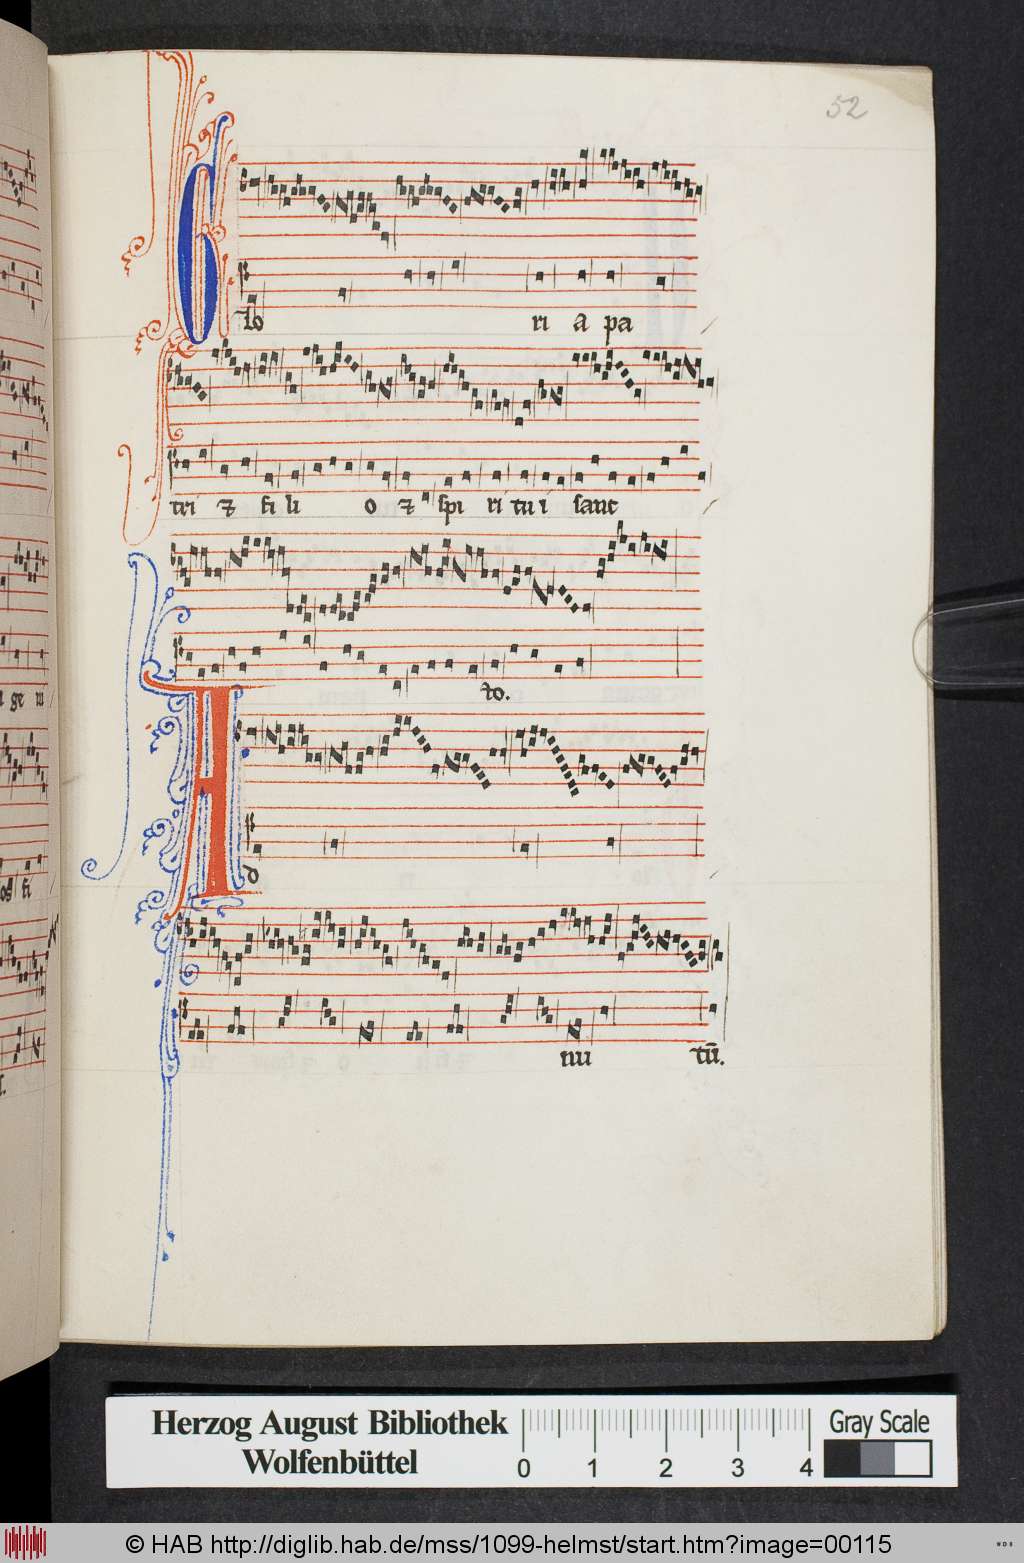 52
Glo ri a pa
tri ⁊ fi li o ⁊ spi ri tu i sanc
to.
Ad
nu tū.
Herzog August Bibliothek
Wolfenbüttel
0 1 2 3 4
Gray Scale
© HAB http://diglib.hab.de/mss/1099-helmst/start.htm?image=00115